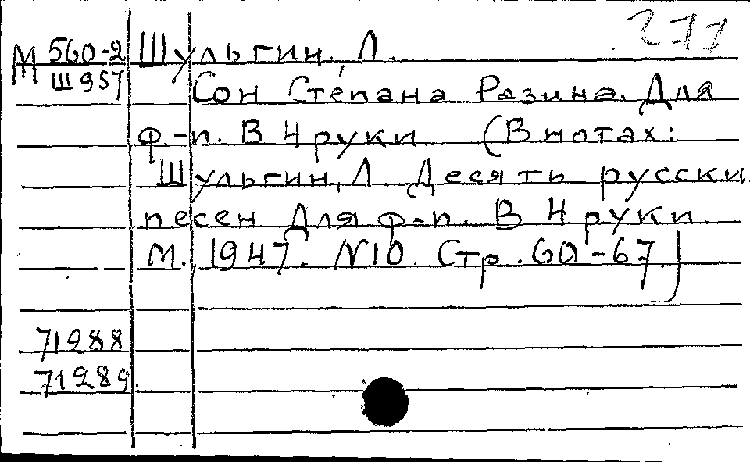 277
М 560-2 Шульгин, Л.
Ш 957
Сон Степана Разина. Для
ф.-п. В 4 руки (В нотах:
Шульгин, Л. Десять русски
песен для ф-п. В 4 руки.
М. 1947. N10. Стр. 60-67)
71288
71289